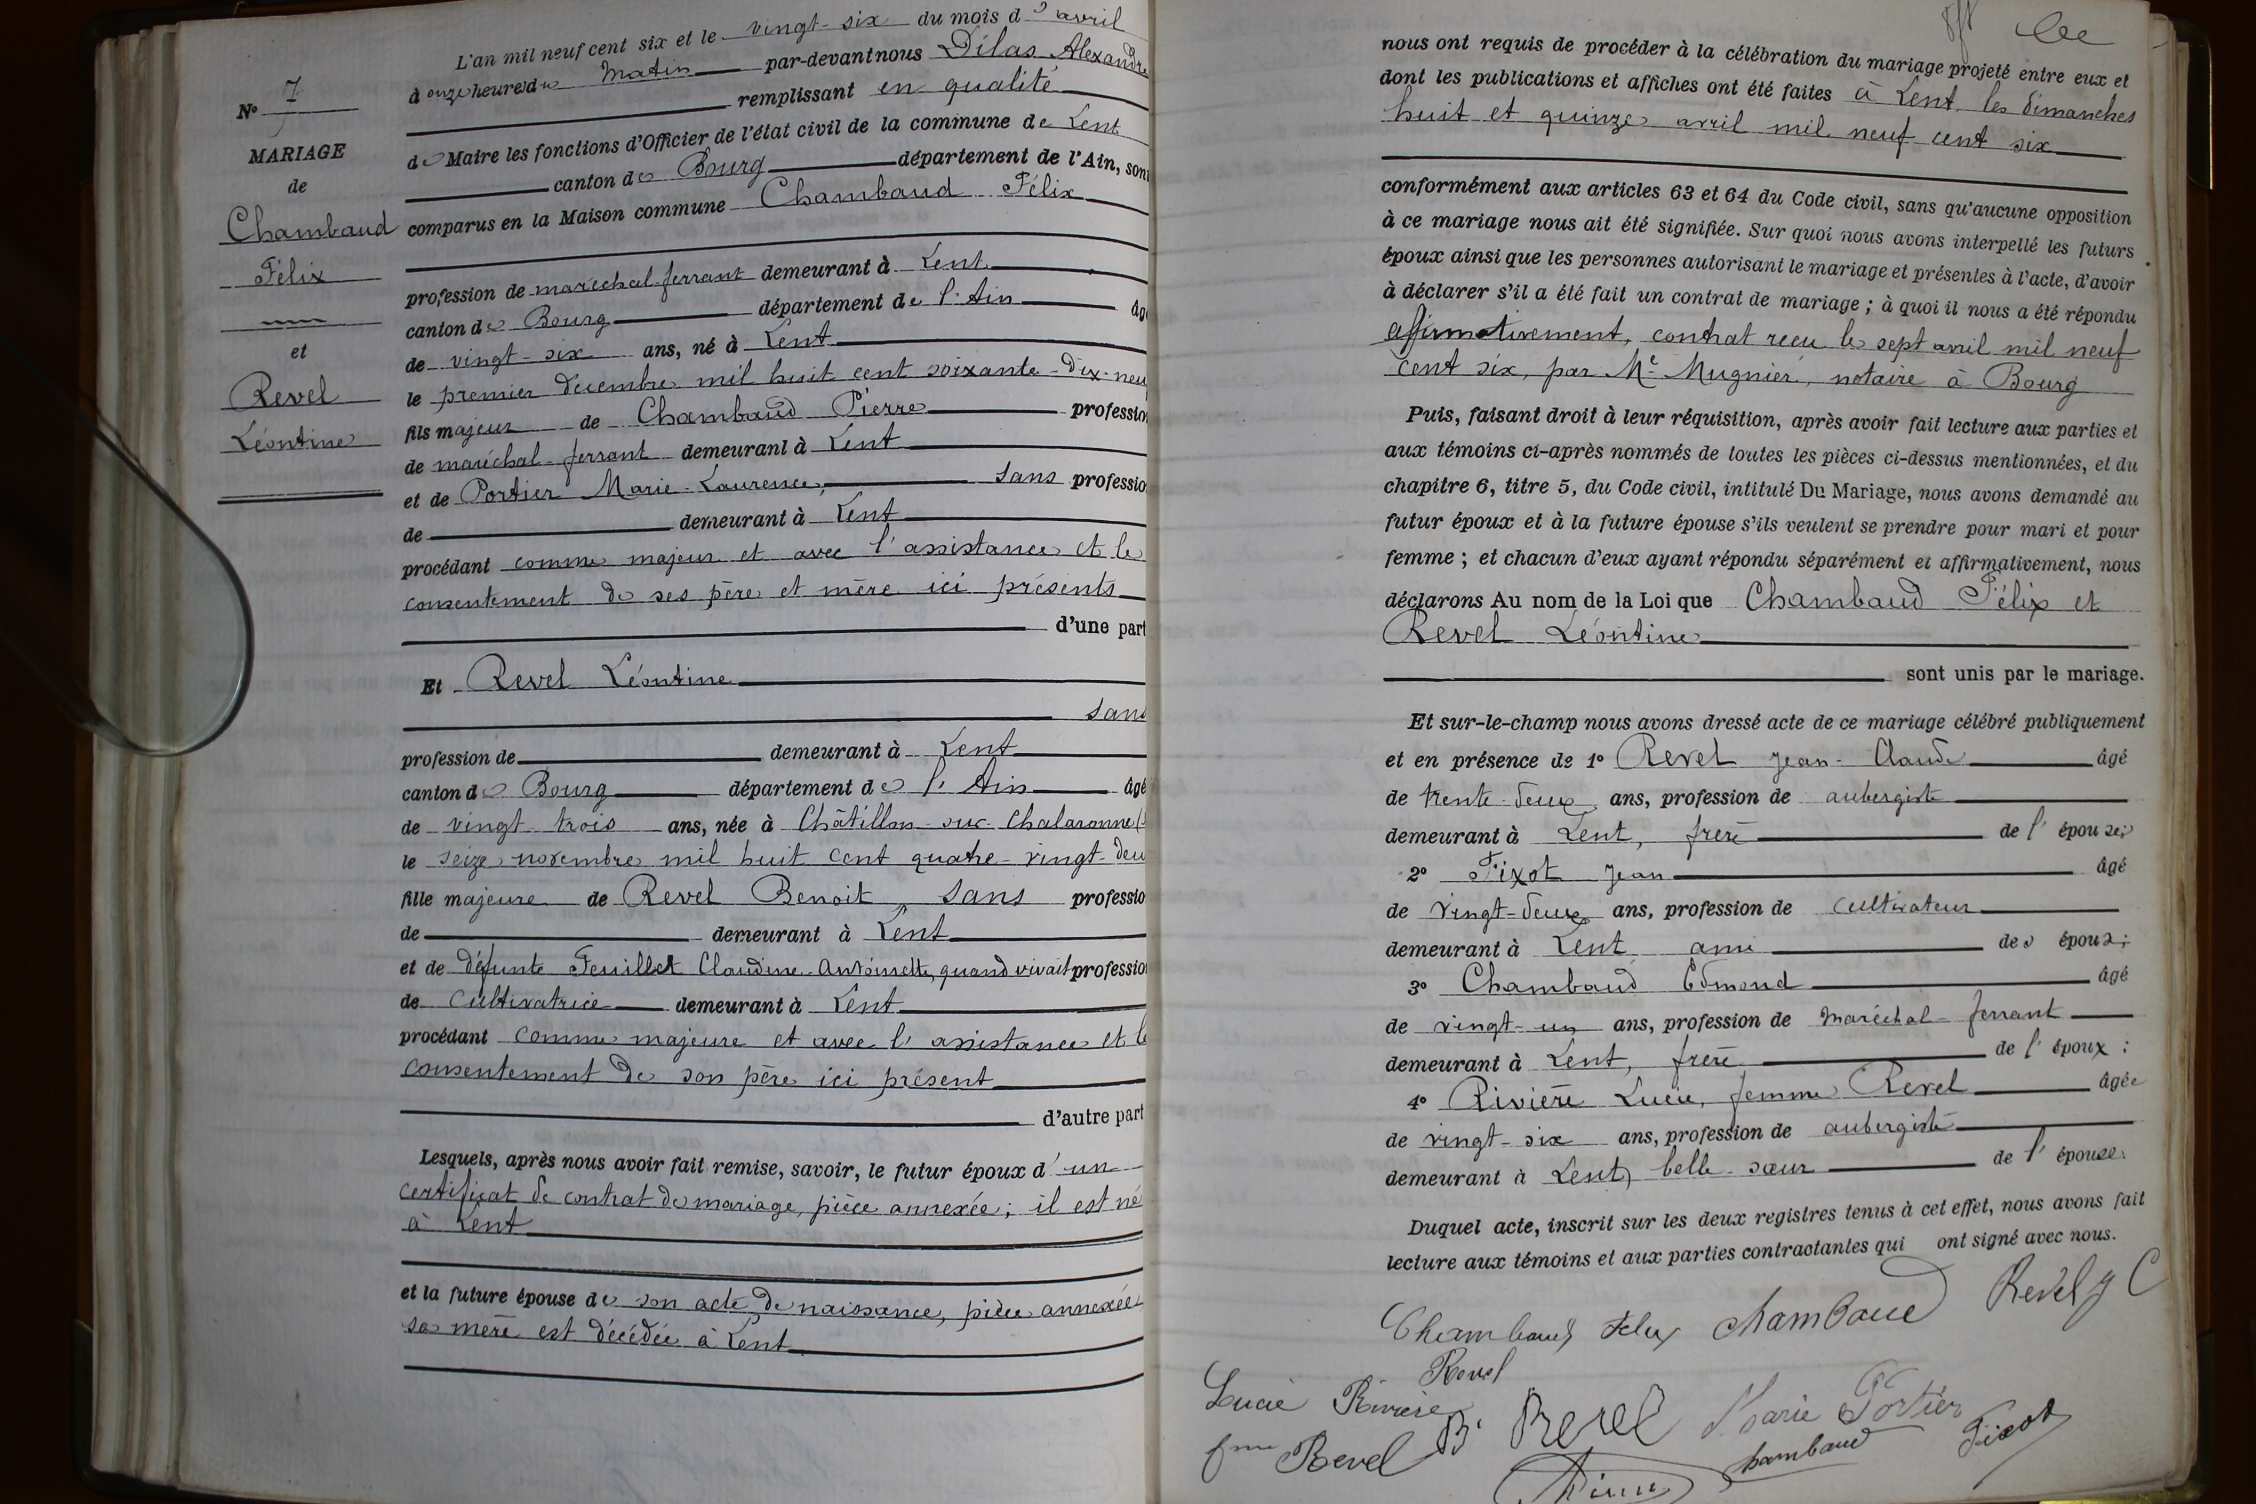 L'an mil neuf cent six et le vingt-six du mois de avril
à onze heures du Matin par-devant nous Dilas Alexandre
remplissant en qualité
de Maire les fonctions d'Officier de l'état civil de la commune de Lent
canton de Bourg département de l'Ain, sont
comparus en la Maison commune Chambaud Félix
profession de maréchal-ferrant demeurant à Lent
canton de Bourg département de l'Ain âgé
de vingt-six ans, né à Lent
le premier décembre mil huit cent soixante-dix-neu
fils majeur de Chambaud Pierre profession
de maréchal-ferrant demeurant à Lent
et de Portier Marie-Laurence, sans professio
de demeurant à Lent
procédant comme majeur et avec l'assistance et le
consentement de ses père et mère ici présents
d'une part
Et Revel Léontine
sans
profession de demeurant à Lent
canton de Bourg département de l'Ain âgé
de vingt trois ans, née à Châtillon-sur-Chalaronne
le seize novembre mil huit cent quatre-vingt-deu
fille majeure de Revel Benoit sans professio
de demeurant à Lent
et de défunte Feuillet Claudine-Antoinette, quand vivait profession
de cultivatrice demeurant à Lent
procédant comme majeure et avec l'assistance et le
consentement de son père ici présent
d'autre part
Lesquels, après nous avoir fait remise, savoir, le futur époux d'un
certificat de contrat de mariage, pièce annexée; il est né
à Lent
et la future épouse de son acte de naissance, pièce annexée
sa mère est décédée à Lent
N° 7
MARIAGE
de
Chambaud
Félix
et
Revel
Léontine
nous ont requis de procéder à la célébration du mariage projeté entre eux et
dont les publications et affiches ont été faites à Lent les dimanches
huit et quinze avril mil neuf cent six
conformément aux articles 63 et 64 du Code civil, sans qu'aucune opposition
à ce mariage nous ait été signifiée. Sur quoi nous avons interpellé les futurs
époux ainsi que les personnes autorisant le mariage et présentes à l'acte, d'avoir
à déclarer s'il a été fait un contrat de mariage; à quoi il nous a été répondu
affirmativement, contrat reçu le sept avril mil neuf
cent six, par Me Mugnier, notaire à Bourg
Puis, faisant droit à leur réquisition, après avoir fait lecture aux parties et
aux témoins ci-après nommés de toutes les pièces ci-dessus mentionnées, et du
chapitre 6, titre 5, du Code civil, intitulé Du Mariage, nous avons demandé au
futur époux et à la future épouse s'ils veulent se prendre pour mari et pour
femme; et chacun d'eux ayant répondu séparément et affirmativement, nous
déclarons Au nom de la Loi que Chambaud Félix et
Revel Léontine
sont unis par le mariage.
Et sur-le-champ nous avons dressé acte de ce mariage célébré publiquement
et en présence de 1° Revel Jean-Claude âgé
de trente-deux ans, profession de aubergiste
demeurant à Lent, frère de l'épouse;
2° Fixot Jean âgé
de vingt-deux ans, profession de cultivateur
demeurant à Lent, ami des époux;
3° Chambaud Edmond âgé
de vingt-un ans, profession de maréchal-ferrant
demeurant à Lent, frère de l'époux;
4° Rivière Lucie, femme Revel âgée
de vingt-six ans, profession de aubergiste
demeurant à Lent, belle-sœur de l'épouse.
Duquel acte, inscrit sur les deux registres tenus à cet effet, nous avons fait
lecture aux témoins et aux parties contractantes qui ont signé avec nous.
Chambaud Félix Chambaud Revel J C
Lucie Rivière Revel
fme Revel B. Revel Marie Portier
Chambaud Fixot